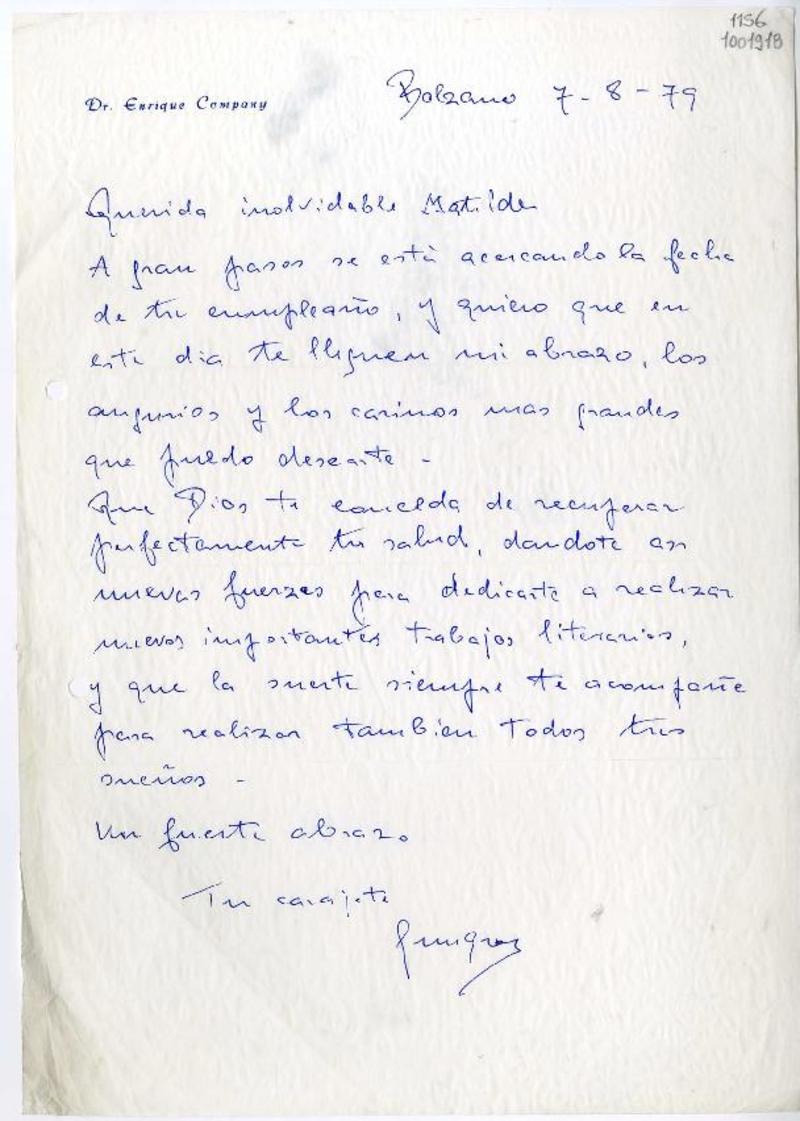 1156
1001918
Dr. Enrique Company
Bolzano 7-8-79
Querida inolvidable Matilde
A gran pasos se està acercando la fecha
de tu cumpleaño, y quiero que en
este dia te lleguen mi abrazo, los
augurios y los carinos mas grandes
que puedo desearte -
Que Dios te conceda de recuperar
perfectamente tu salud, dandote asi
nuevas fuerzas para dedicarte a realizar
nuevos importantes trabajos literarios,
y que la suerte siempre te acompañe
para realizar tambien todos tus
sueños -
Un fuerte abrazo
Tu carajete